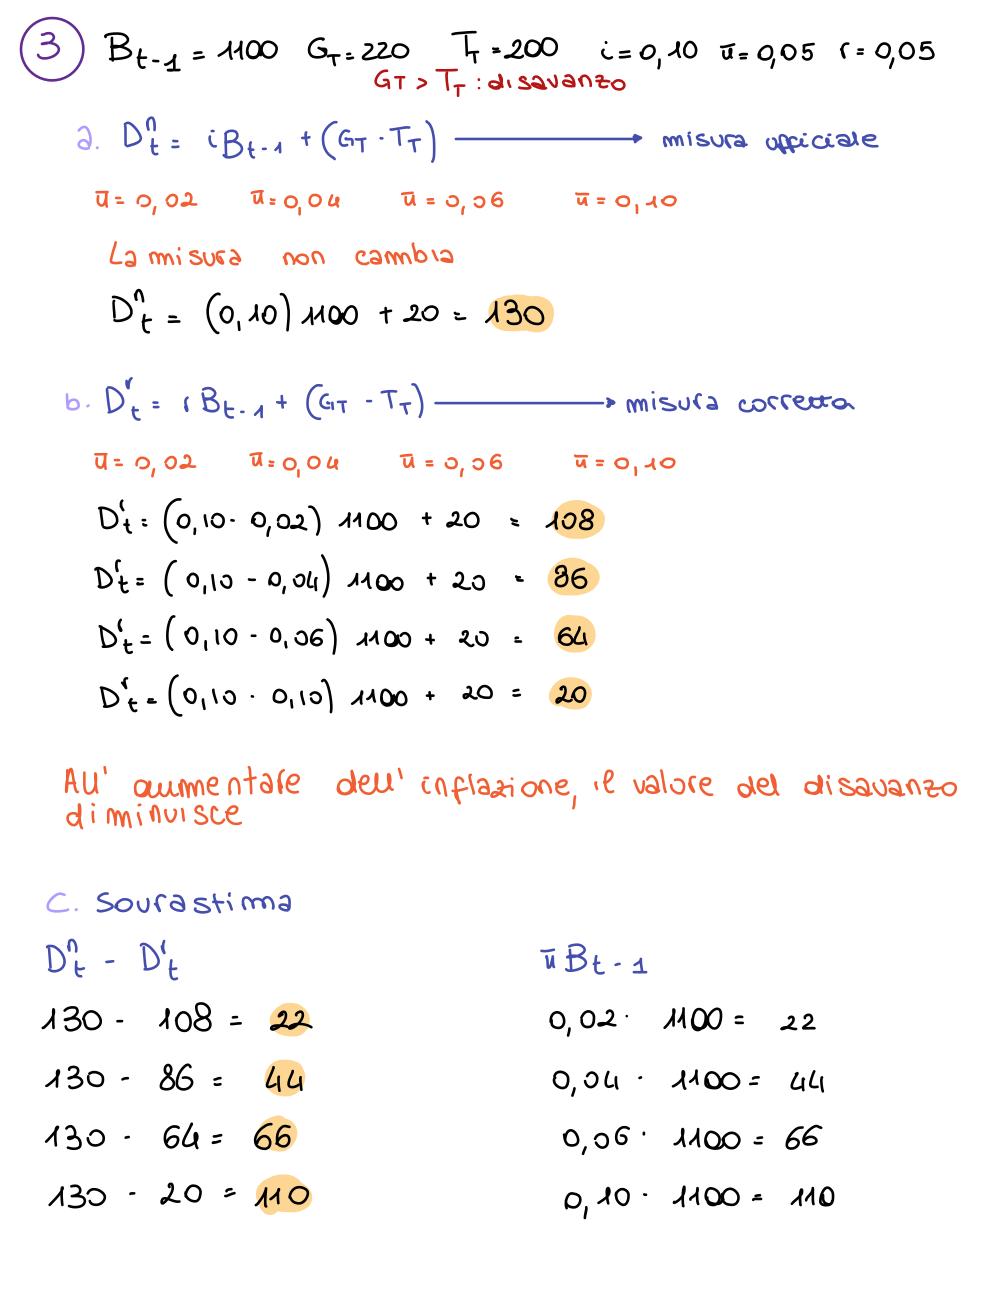 3 B_{t-1} = 1100 G_T = 220 T_T = 200 i = 0,10 π̄ = 0,05 r = 0,05
G_T > T_T : disavanzo
a. Dⁿ_t = i B_{t-1} + (G_T - T_T) → misura ufficiale
π̄ = 0,02 π̄ = 0,04 π̄ = 0,06 π̄ = 0,10
La misura non cambia
Dⁿ_t = (0,10) 1100 + 20 = 130
b. Dʳ_t = r B_{t-1} + (G_T - T_T) → misura corretta
π̄ = 0,02 π̄ = 0,04 π̄ = 0,06 π̄ = 0,10
Dʳ_t = (0,10 - 0,02) 1100 + 20 = 108
Dʳ_t = (0,10 - 0,04) 1100 + 20 = 86
Dʳ_t = (0,10 - 0,06) 1100 + 20 = 64
Dʳ_t = (0,10 - 0,10) 1100 + 20 = 20
All' aumentare dell' inflazione, il valore del disavanzo
diminuisce
c. Sovrastima
Dⁿ_t - Dʳ_t π̄ B_{t-1}
130 - 108 = 22 0,02 · 1100 = 22
130 - 86 = 44 0,04 · 1100 = 44
130 - 64 = 66 0,06 · 1100 = 66
130 - 20 = 110 0,10 · 1100 = 110